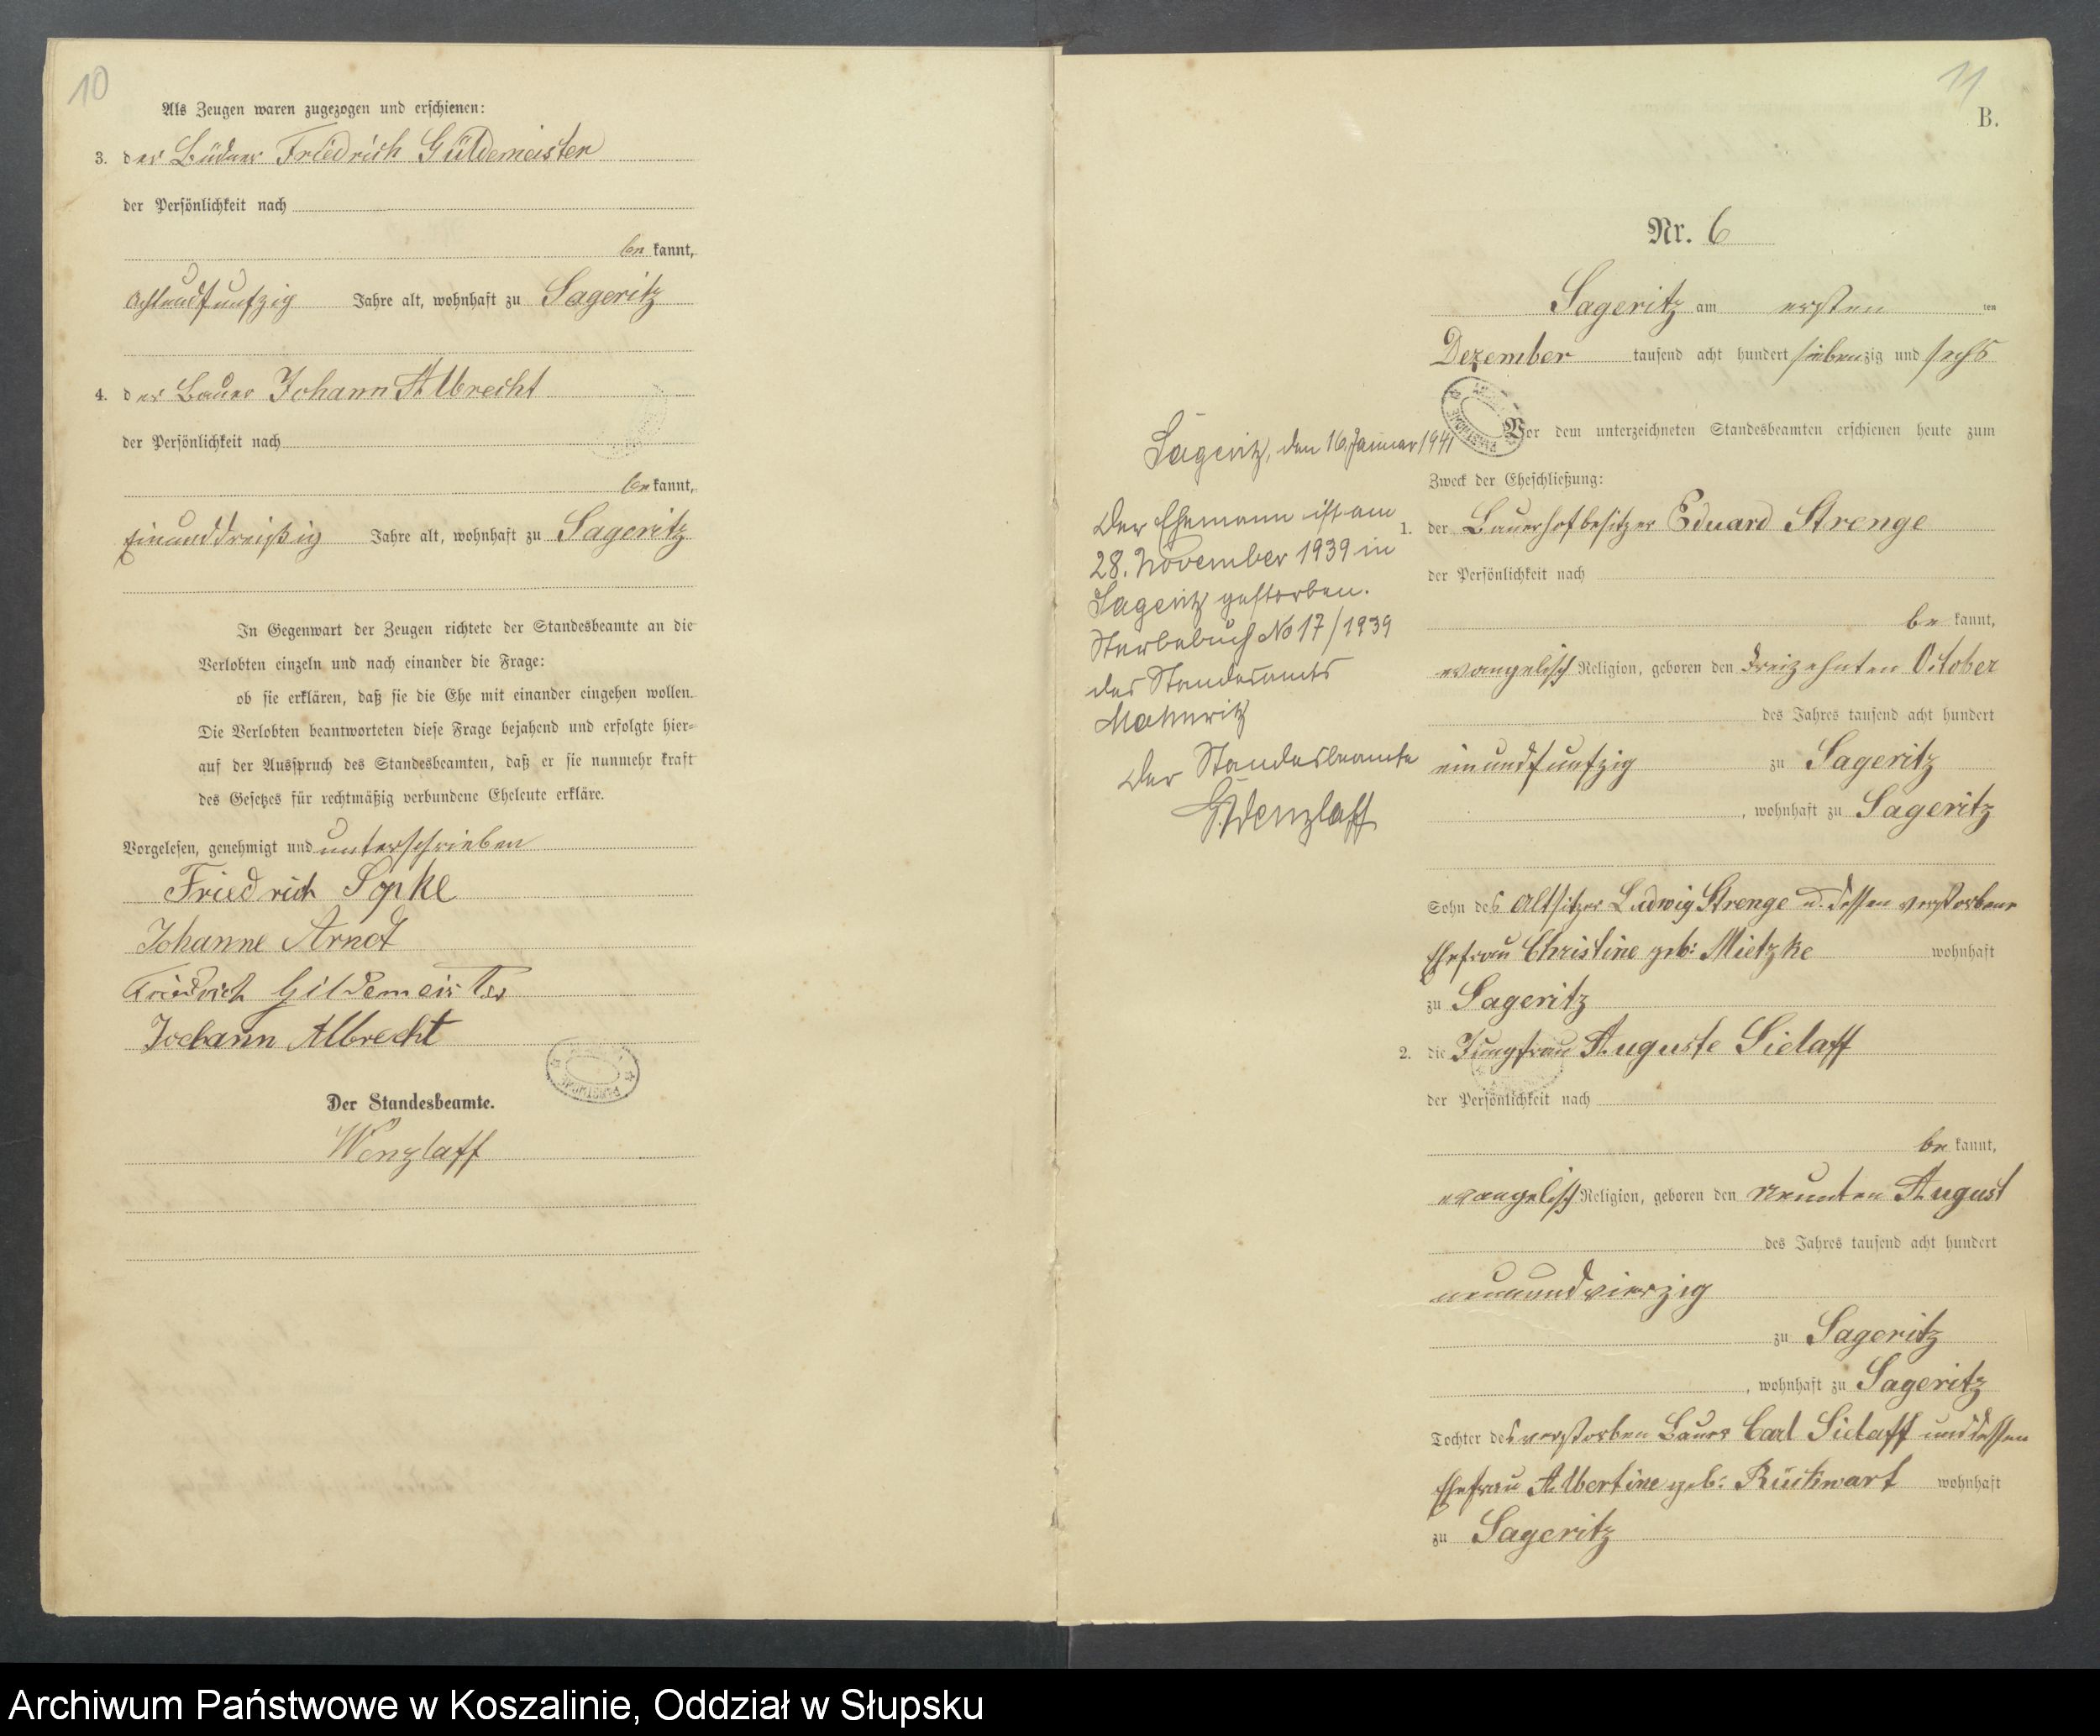 10
Als Zeugen waren zugezogen und erschienen:
3. der Büdner Friedrich Güldemeister
der Persönlichkeit nach
be kannt,
achtundfunfzig Jahre alt, wohnhaft zu Sageritz
4. der Bauer Johann Albrecht
der Persönlichkeit nach
be kannt,
einunddreißig Jahre alt, wohnhaft zu Sageritz
In Gegenwart der Zeugen richtete der Standesbeamte an die
Verlobten einzeln und nach einander die Frage:
ob sie erklären, daß sie die Ehe mit einander eingehen wollen.
Die Verlobten beantworteten diese Frage bejahend und erfolgte hier=
auf der Ausspruch des Standesbeamten, daß er sie nunmehr kraft
des Gesetzes für rechtmäßig verbundene Eheleute erkläre.
Vorgelesen, genehmigt und unterschrieben
Friedrich Sopke
Johanne Arndt
Friedrich Gildemeister
Johann Albrecht
Der Standesbeamte.
Wenzlaff
11
B.
Nr. 6
Sageritz am ersten ten
Dezember tausend acht hundert siebenzig und sechs
Vor dem unterzeichneten Standesbeamten erschienen heute zum
Zweck der Eheschließung:
1. der Bauerhofbesitzer Eduard Strenge
der Persönlichkeit nach
be kannt,
evangelisch Religion, geboren den dreizehnten October
des Jahres tausend acht hundert
einundfunfzig zu Sageritz
, wohnhaft zu Sageritz
Sohn des Altsitzer Ludwig Strenge u. dessen verstorbene
Ehefrau Christine geb: Mietzke wohnhaft
zu Sageritz
2. die Jungfrau Auguste Sielaff
der Persönlichkeit nach
be kannt,
evangelisch Religion, geboren den neunten August
des Jahres tausend acht hundert
neunundvierzig
zu Sageritz
, wohnhaft zu Sageritz
Tochter des verstorben Bauer Carl Sielaff und dessen
Ehefrau Albertine geb: wohnhaft
zu Sageritz
Sageritz, den 16. Januar 1941
Der Ehemann ist am
28. November 1939 in
Sageritz gestorben.
Sterbebuch No 17/1939
des Standesamts
Mahnwitz
Der Standesbeamte
Wenzlaff
Archiwum Państwowe w Koszalinie, Oddział w Słupsku